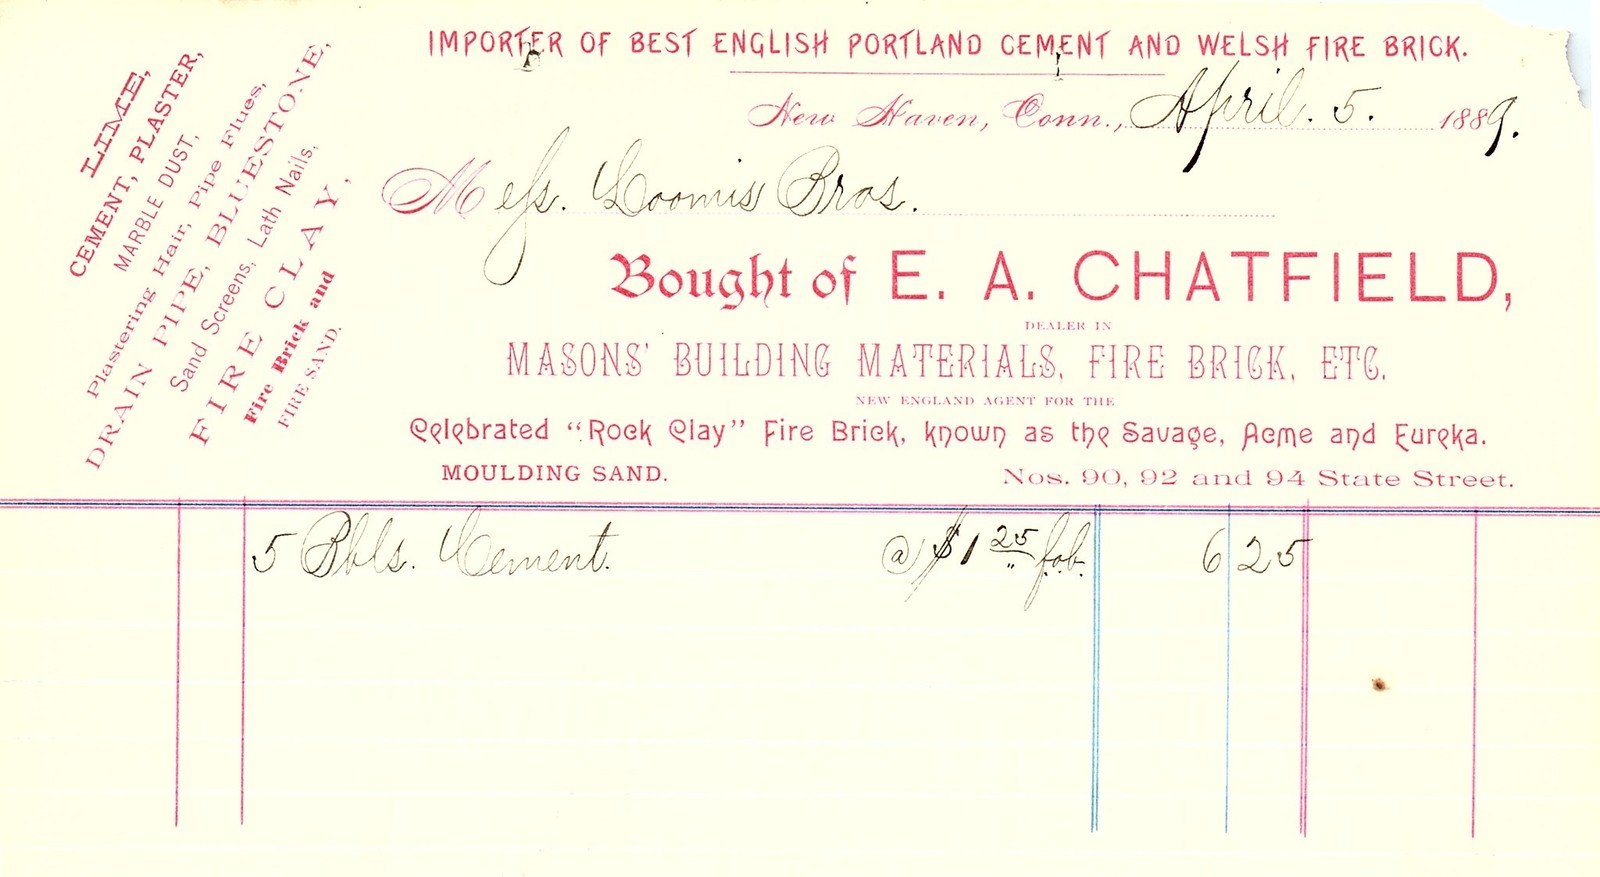 IMPORTER OF BEST ENGLISH PORTLAND CEMENT AND WELSH FIRE BRICK.
New Haven, Conn., April. 5. 1889.
Mess. Loomis Bros.
Bought of E. A. CHATFIELD,
DEALER IN
MASONS' BUILDING MATERIALS, FIRE BRICK, ETC.
NEW ENGLAND AGENT FOR THE
Celebrated "Rock Clay" Fire Brick, known as the Savage, Acme and Eureka.
MOULDING SAND. Nos. 90, 92 and 94 State Street.
LIME,
CEMENT, PLASTER,
MARBLE DUST,
Plastering Hair, Pipe Flues,
DRAIN PIPE, BLUESTONE,
Sand Screens, Lath Nails,
FIRE CLAY,
Fire Brick and
FIRE SAND.
5 Bbls. Cement. @ $1 25 fob. 6 25